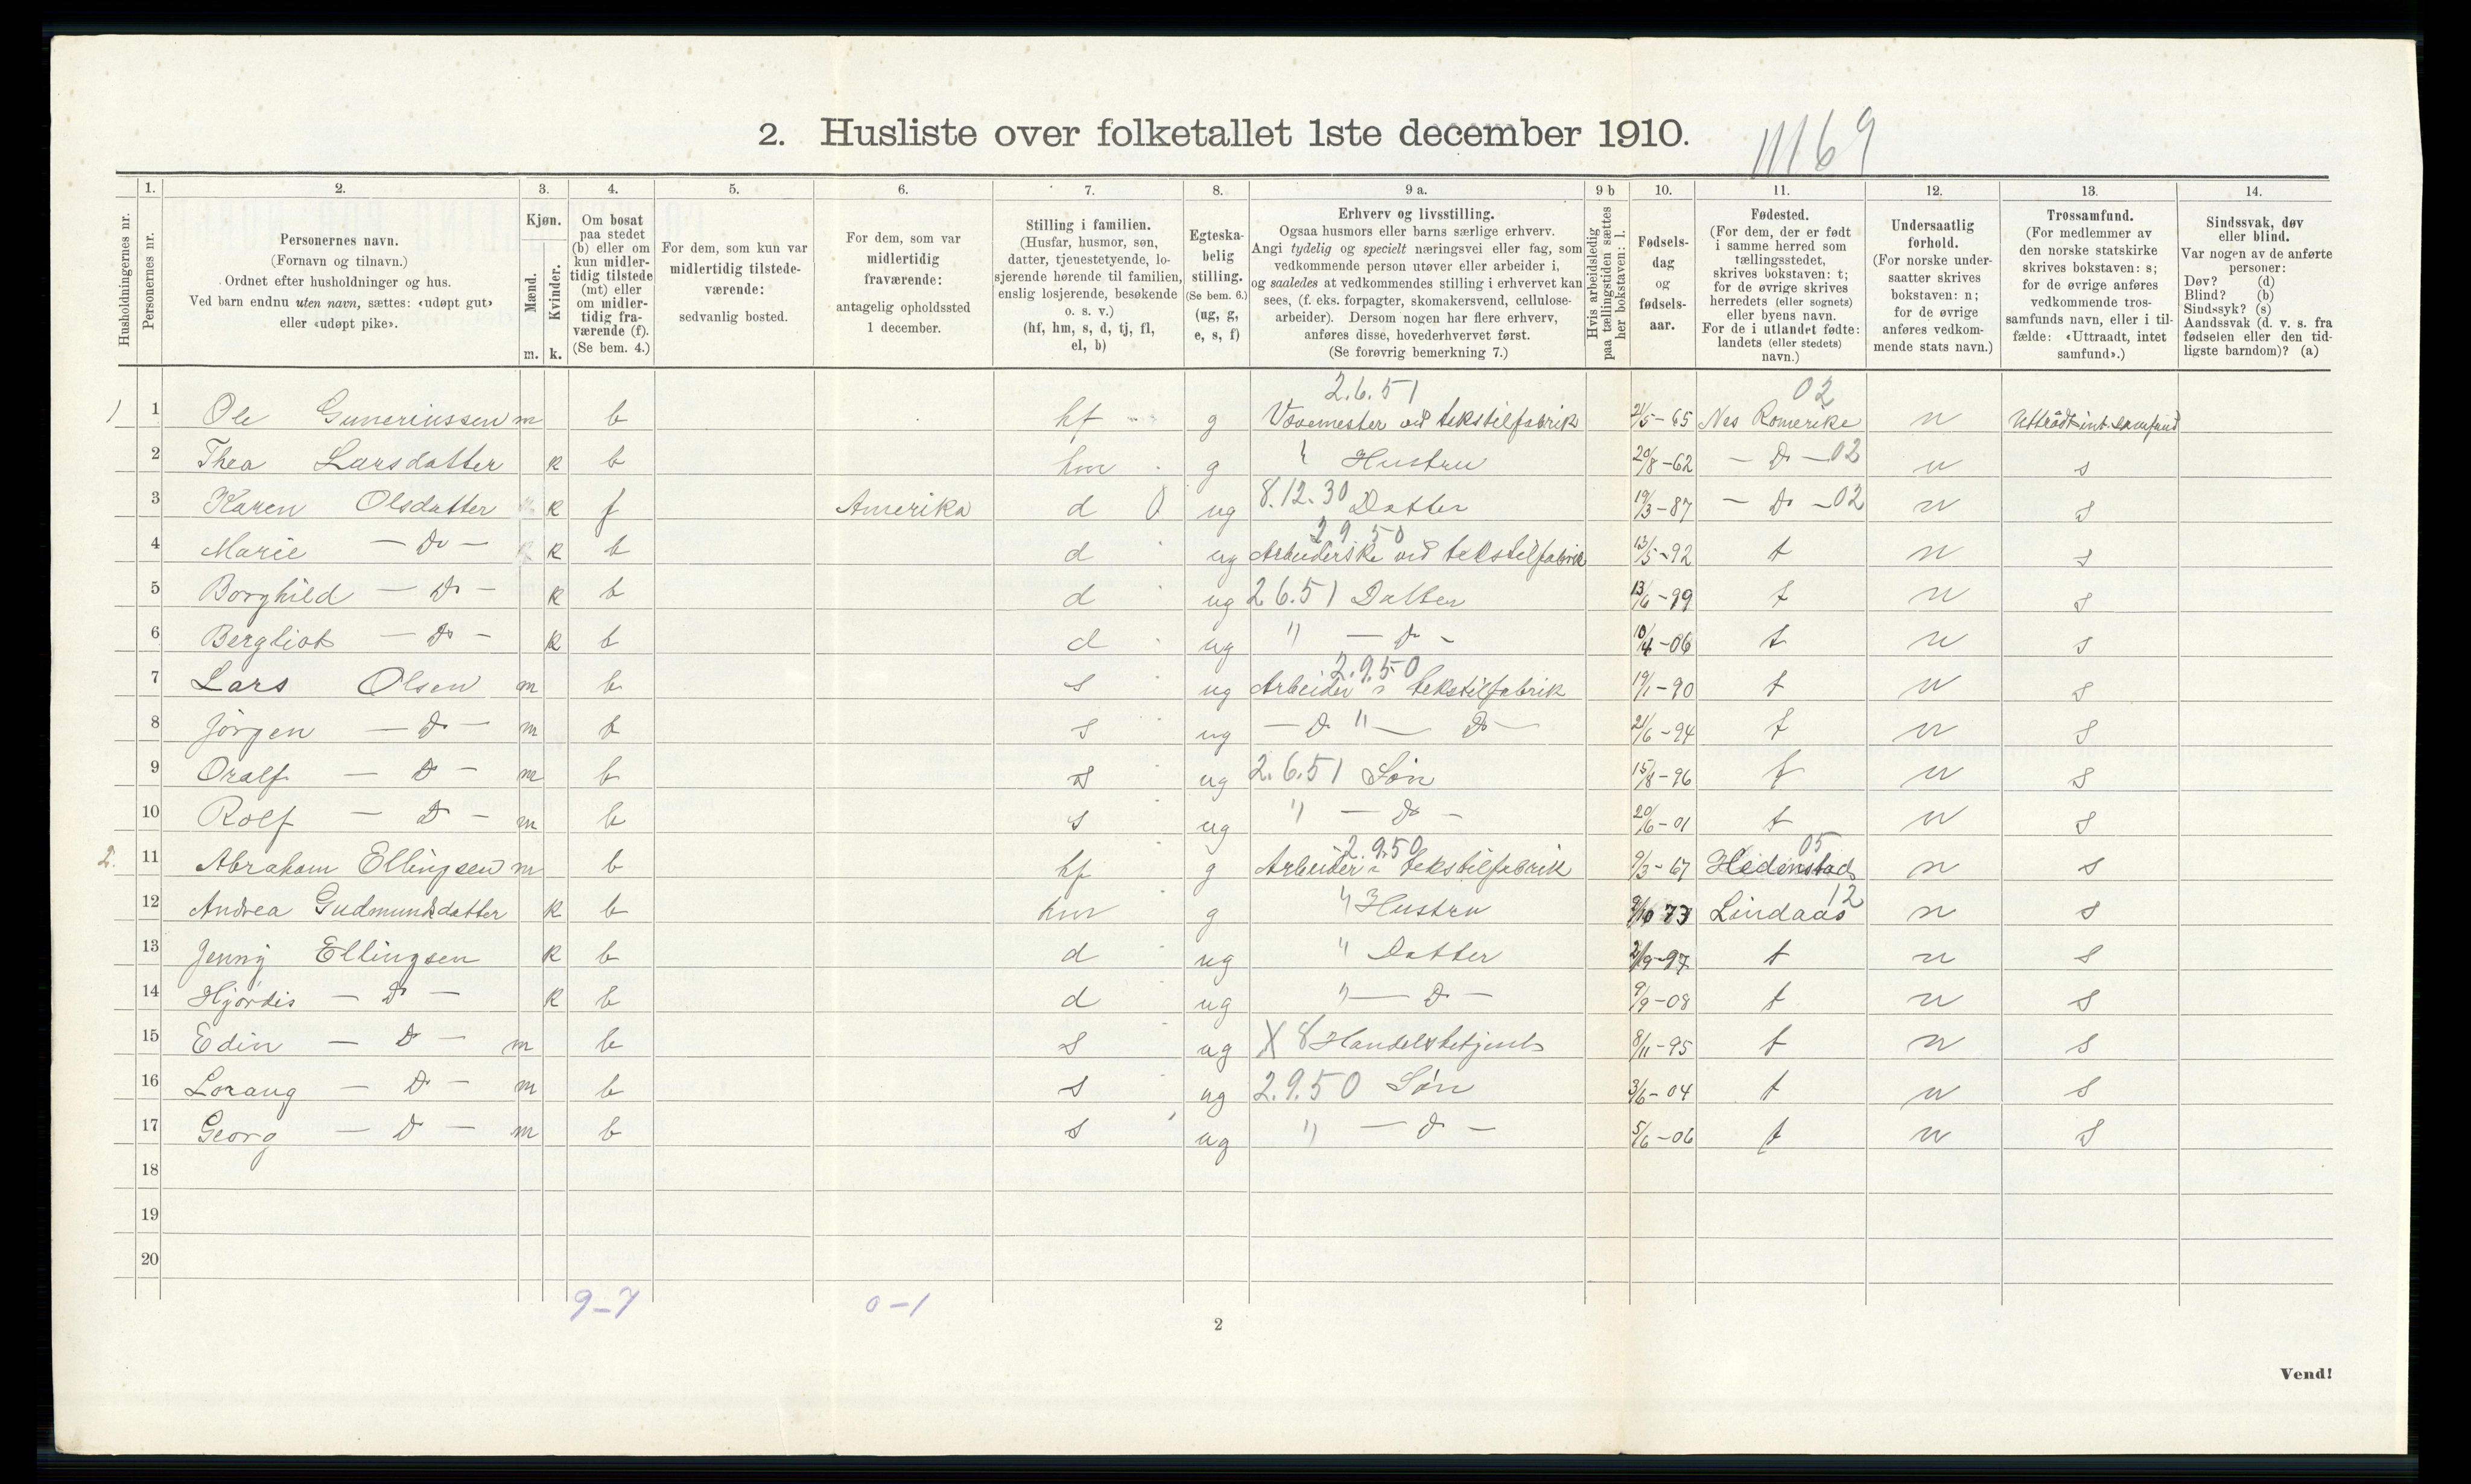 2. Husliste over folketallet 1ste december 1910.
11169
Husholdningernes nr.
1. Personernes nr.
2. Personernes navn. (Fornavn og tilnavn.) Ordnet efter husholdninger og hus. Ved barn endnu uten navn, sættes: «udøpt gut» eller «udøpt pike».
3. Kjøn. Mænd. m. Kvinder. k.
4. Om bosat paa stedet (b) eller om kun midlertidig tilstede (mt) eller om midlertidig fraværende (f). (Se bem. 4.)
5. For dem, som kun var midlertidig tilstedeværende: sedvanlig bosted.
6. For dem, som var midlertidig fraværende: antagelig opholdssted 1 december.
7. Stilling i familien. (Husfar, husmor, søn, datter, tjenestetyende, losjerende hørende til familien, enslig losjerende, besøkende o. s. v.) (hf, hm, s, d, tj, fl, el, b)
8. Egteskabelig stilling. (Se bem. 6.) (ug, g, e, s, f)
9 a. Erhverv og livsstilling. Ogsaa husmors eller barns særlige erhverv. Angi tydelig og specielt næringsvei eller fag, som vedkommende person utøver eller arbeider i, og saaledes at vedkommendes stilling i erhvervet kan sees, (f. eks. forpagter, skomakersvend, cellulosearbeider). Dersom nogen har flere erhverv, anføres disse, hovederhvervet først. (Se forøvrig bemerkning 7.)
9 b Hvis arbeidsledig paa tællingstiden sættes her bokstaven: l.
10. Fødselsdag og fødselsaar.
11. Fødested. (For dem, der er født i samme herred som tællingsstedet, skrives bokstaven: t; for de øvrige skrives herredets (eller sognets) eller byens navn. For de i utlandet fødte: landets (eller stedets) navn.)
12. Undersaatlig forhold. (For norske undersaatter skrives bokstaven: n; for de øvrige anføres vedkommende stats navn.)
13. Trossamfund. (For medlemmer av den norske statskirke skrives bokstaven: s; for de øvrige anføres vedkommende trossamfunds navn, eller i tilfælde: «Uttraadt, intet samfund».)
14. Sindssvak, døv eller blind. Var nogen av de anførte personer: Døv? (d) Blind? (b) Sindssyk? (s) Aandssvak (d. v. s. fra fødselen eller den tidligste barndom)? (a)
2.6.51 02
1) 1 Ole Gunerinssen m b hf g Vævemester ved tekstilfabrik 21/5-65 Nes Romerike n Uttrådt int. samfund
2 Thea Larsdatter k b hm g " Hustru 20/8-62 - Do - 02 n s
3 Karen Olsdatter k f Amerika d 0 ug 8.12.30 Datter 19/3-87 - Do - 02 n s
2 9.50
4 Marie - Do - k b d ug Arbeiderske ved tekstilfabrik 13/5-92 t n s
5 Borghild - Do - k b d ug 2 6.51 Datter 13/6-99 t n s
6 Bergliot - Do - k b d ug " - Do - 10/4-06 t n s
2.9.50
7 Lars Olsen m b s ug Arbeider " tekstilfabrik 19/1-90 t n s
8 Jörgen - Do - m b s ug - Do " - Do - 21/6-94 t n s
9 Oralf - Do - m b s ug 2.6.51 Sön 15/8-96 t n s
10 Rolf - Do - m b s ug " - Do - 20/6-01 t n s
2.9.50 05
2. 11 Abraham Ellingsen m b hf g Arbeider " tekstilfabrik 9/3-67 Hedenstad n s
12
12 Andrea Gudmundsdatter k b hm g " Hustru 9/10 73 Lindaas n s
13 Jenny Ellingsen k b d ug " Datter 2/9-97 t n s
14 Hjördis - Do - k b d ug " - Do - 9/9-08 t n s
15 Edin - Do - m b s ug X 8 Handelsbetjent 8/11-95 t n s
16 Lorang - Do - m b s ug 2.9.50 Sön 3/6-04 t n s
17 Georg - Do - m b s ug " - Do - 5/6-06 t n s
18
19
20
9-7 0-1
2
Vend!